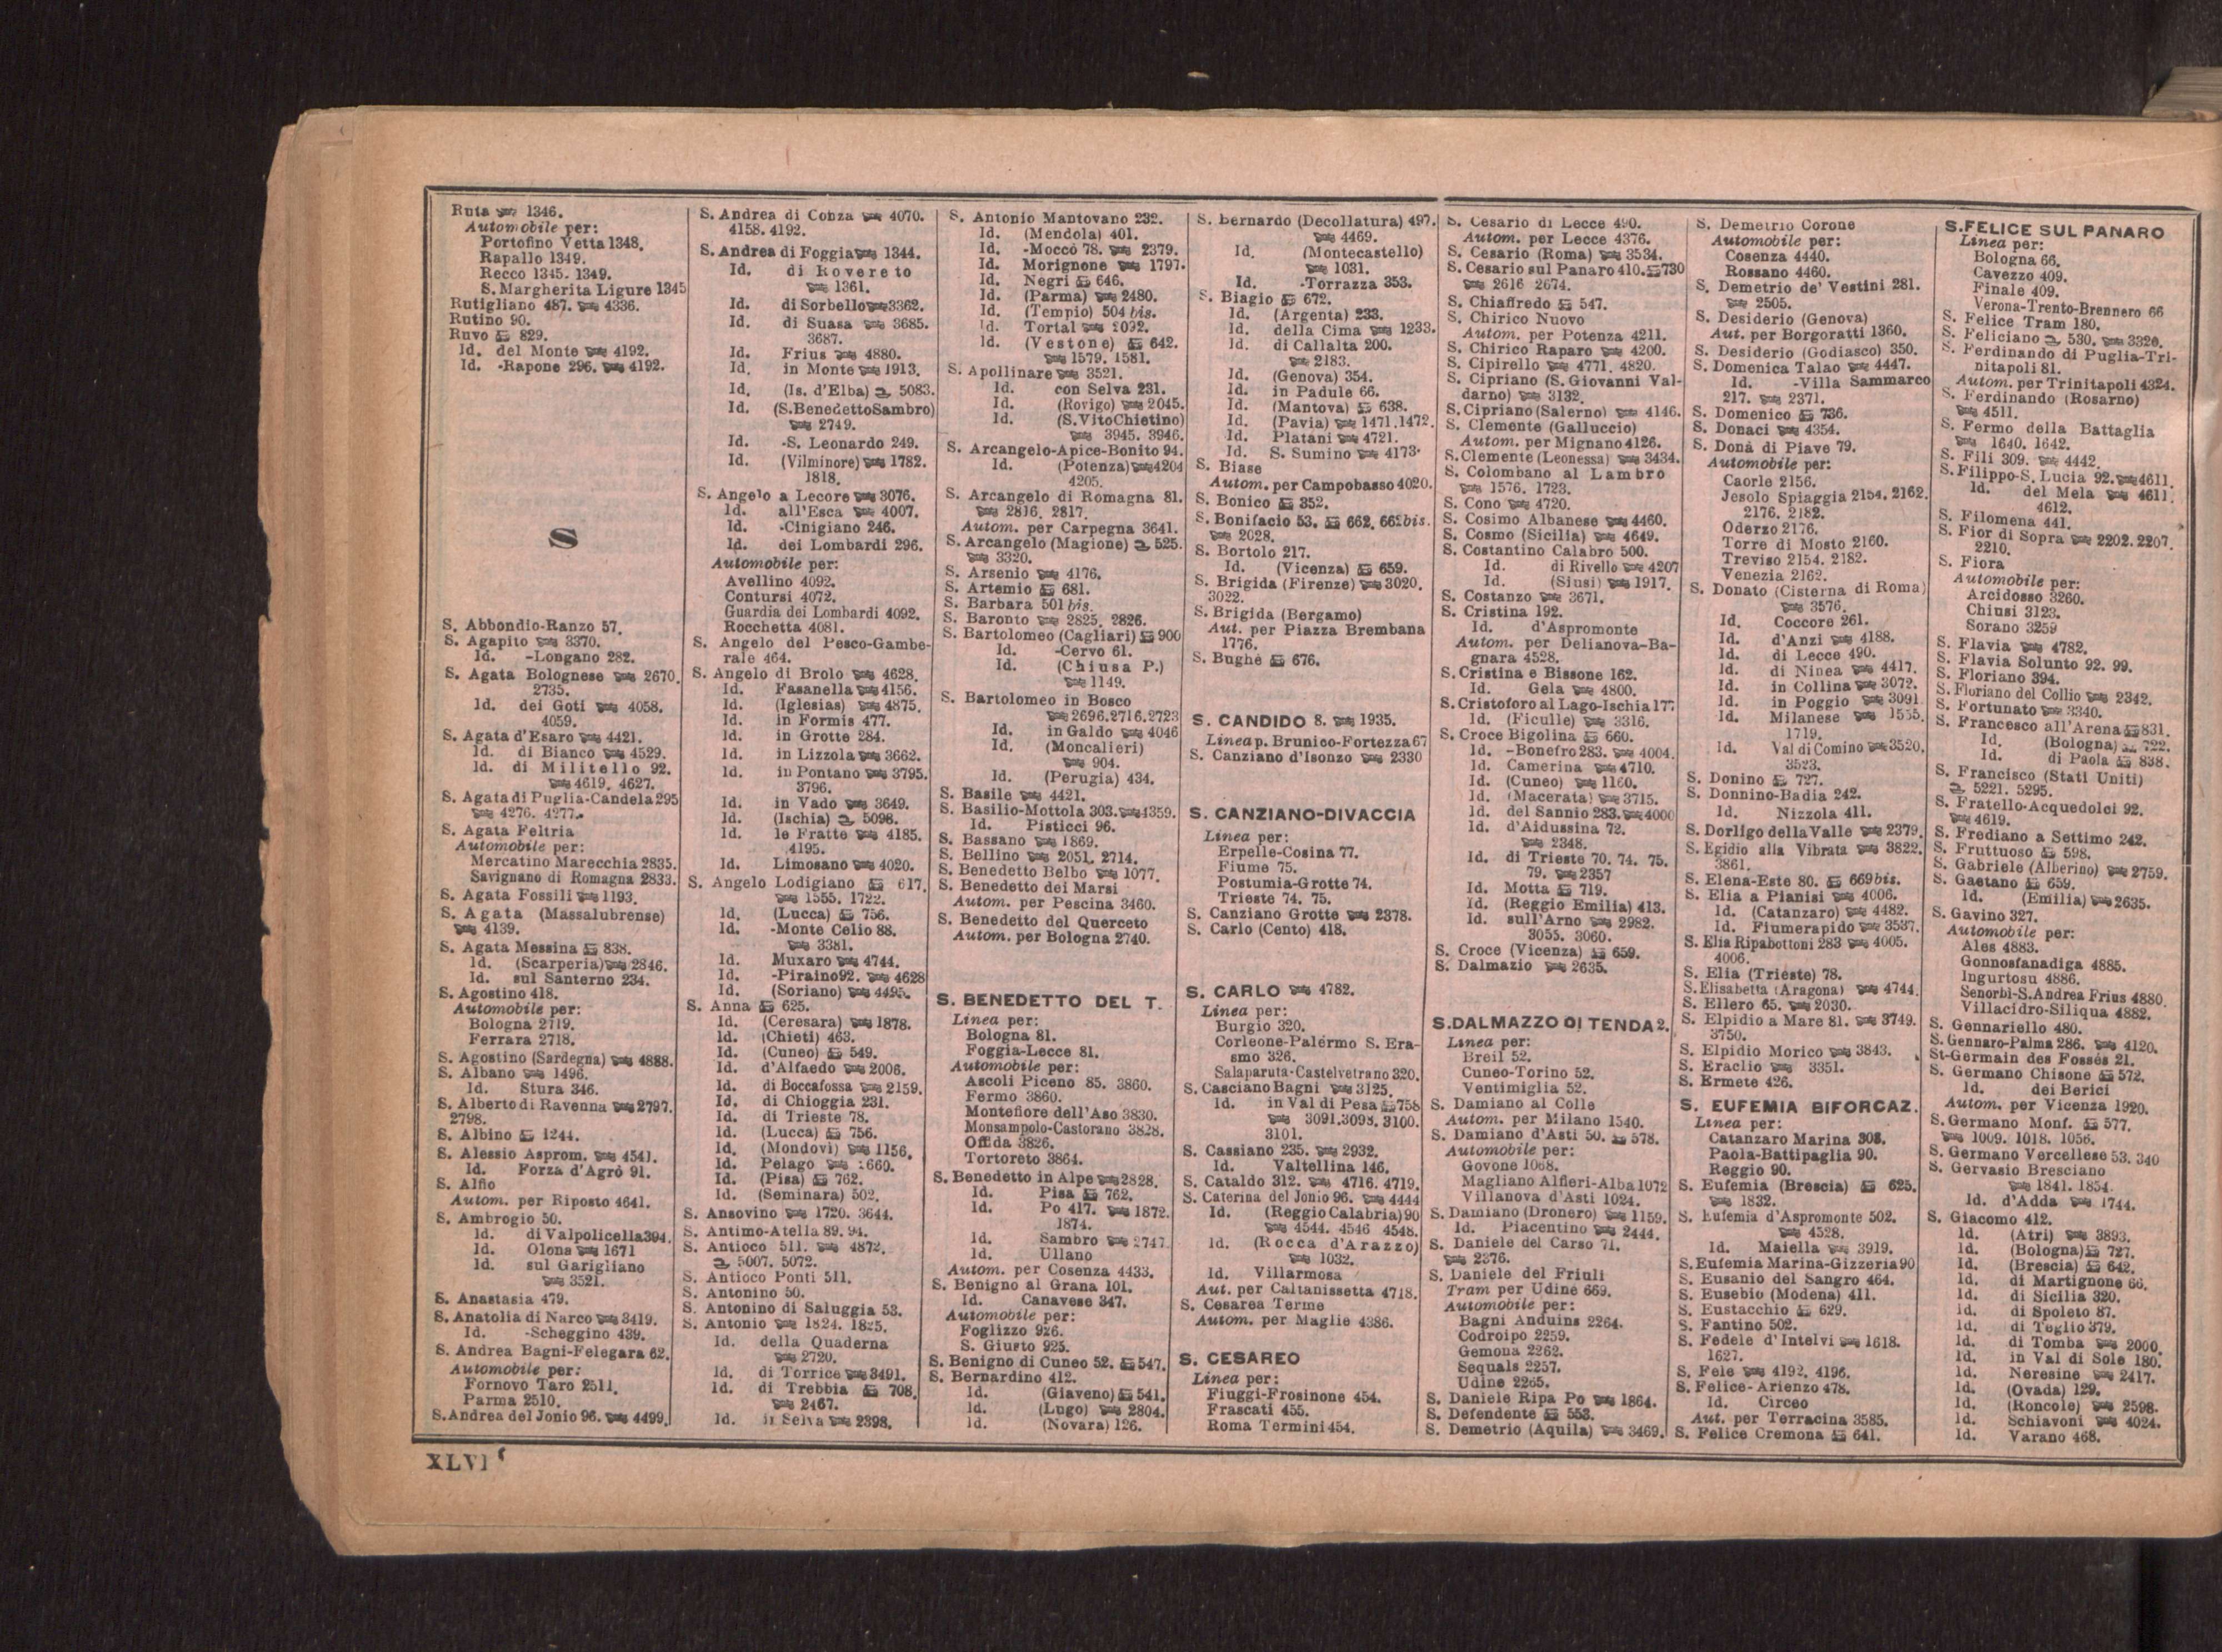 Ruta 1346.
Automobile per:
Portofino Vetta 1348.
Rapallo 1349.
Recco 1345. 1349.
S. Margherita Ligure 1345
Rutigliano 487. 4336.
Rutino 90.
Ruvo 829.
Id. del Monte 4192.
Id. -Rapone 296. 4192.
S
S. Abbondio-Ranzo 57.
S. Agapito 3370.
Id. -Longano 282.
S. Agata Bolognese 2670.
2735.
Id. dei Goti 4058.
4059.
S. Agata d'Esaro 4421.
Id. di Bianco 4529.
Id. di Militello 92.
4619. 4627.
S. Agata di Puglia-Candela 295
4276. 4277.
S. Agata Feltria
Automobile per:
Mercatino Marecchia 2835.
Savignano di Romagna 2833.
S. Agata Fossili 1193.
S. Agata (Massalubrense)
4139.
S. Agata Messina 838.
Id. (Scarperia) 2846.
Id. sul Santerno 234.
S. Agostino 418.
Automobile per:
Bologna 2719.
Ferrara 2718.
S. Agostino (Sardegna) 4888.
S. Albano 1496.
Id. Stura 346.
S. Alberto di Ravenna 2797.
2798.
S. Albino 1244.
S. Alessio Asprom. 4541.
Id. Forza d'Agrò 91.
S. Alfio
Autom. per Riposto 4641.
S. Ambrogio 50.
Id. di Valpolicella 394.
Id. Olona 1671
Id. sul Garigliano
3521.
S. Anastasia 479.
S. Anatolia di Narco 3419.
Id. -Scheggino 439.
S. Andrea Bagni-Felegara 62.
Automobile per:
Fornovo Taro 2511.
Parma 2510.
S. Andrea del Jonio 96. 4499.
S. Andrea di Conza 4070.
4158. 4192.
S. Andrea di Foggia 1344.
Id. di Rovereto
1361.
Id. di Sorbello 3362.
Id. di Suasa 3685.
3687.
Id. Frius 4880.
Id. in Monte 1913.
Id. (Is. d'Elba) 5083.
Id. (S. Benedetto Sambro)
2749.
Id. -S. Leonardo 249.
Id. (Vilminore) 1782.
1818.
S. Angelo a Lecore 3076.
Id. all'Esca 4007.
Id. -Cinigiano 246.
Id. dei Lombardi 296.
Automobile per:
Avellino 4092.
Contursi 4072.
Guardia dei Lombardi 4092.
Rocchetta 4081.
S. Angelo del Pesco-Gambe-
rale 464.
S. Angelo di Brolo 4628.
Id. Fasanella 4156.
Id. (Iglesias) 4875.
Id. in Formis 477.
Id. in Grotte 284.
Id. in Lizzola 3662.
Id. in Pontano 3795.
3796.
Id. in Vado 3649.
Id. (Ischia) 5098.
Id. le Fratte 4185.
4195.
Id. Limosano 4020.
S. Angelo Lodigiano 617.
1555. 1722.
Id. (Lucca) 756.
Id. -Monte Celio 88.
3381.
Id. Muxaro 4744.
Id. -Piraino 92. 4628
Id. (Soriano) 4495.
S. Anna 625.
Id. (Ceresara) 1878.
Id. (Chieti) 463.
Id. (Cuneo) 549.
Id. d'Alfaedo 2006.
Id. di Boccafossa 2159.
Id. di Chioggia 231.
Id. di Trieste 78.
Id. (Lucca) 756.
Id. (Mondovì) 1156.
Id. Pelago 660.
Id. (Pisa) 762.
Id. (Seminara) 502.
S. Ansovino 1720. 3644.
S. Antimo-Atella 89. 94.
S. Antioco 511. 4872.
5007. 5072.
S. Antioco Ponti 511.
S. Antonino 50.
S. Antonino di Saluggia 53.
S. Antonio 1824. 1825.
Id. della Quaderna
2720.
Id. di Torrice 3491.
Id. di Trebbia 708.
2467.
Id. in Selva 2398.
S. Antonio Mantovano 232.
Id. (Mendola) 401.
Id. -Moccò 78. 2379.
Id. Morignone 1797.
Id. Negri 646.
Id. (Parma) 2480.
Id. (Tempio) 504 bis.
Id. Tortal 2092.
Id. (Vestone) 642.
1579. 1581.
S. Apollinare 3521.
Id. con Selva 231.
Id. (Rovigo) 2045.
Id. (S. Vito Chietino)
3945. 3946.
S. Arcangelo-Apice-Bonito 94.
Id. (Potenza) 4204
4205.
S. Arcangelo di Romagna 81.
2816. 2817.
Autom. per Carpegna 3641.
S. Arcangelo (Magione) 525.
3320.
S. Arsenio 4176.
S. Artemio 681.
S. Barbara 501 bis.
S. Baronto 2825. 2826.
S. Bartolomeo (Cagliari) 900
Id. -Cervo 61.
Id. (Chiusa P.)
1149.
S. Bartolomeo in Bosco
2696. 2716. 2723
Id. in Galdo 4046
Id. (Moncalieri)
904.
Id. (Perugia) 434.
S. Basile 4421.
S. Basilio-Mottola 303. 4359.
Id. Pisticci 96.
S. Bassano 1869.
S. Bellino 2051. 2714.
S. Benedetto Belbo 1077.
S. Benedetto dei Marsi
Autom. per Pescina 3460.
S. Benedetto del Querceto
Autom. per Bologna 2740.
S. BENEDETTO DEL T.
Linea per:
Bologna 81.
Foggia-Lecce 81.
Automobile per:
Ascoli Piceno 85. 3860.
Fermo 3860.
Montefiore dell'Aso 3830.
Monsampolo-Castorano 3828.
Offida 3826.
Tortoreto 3864.
S. Benedetto in Alpe 2828.
Id. Pisa 762.
Id. Po 417. 1872.
1874.
Id. Sambro 2747.
Id. Ullano
Autom. per Cosenza 4433.
S. Benigno al Grana 101.
Id. Canavese 347.
Automobile per:
Foglizzo 926.
S. Giusto 925.
S. Benigno di Cuneo 52. 547.
S. Bernardino 412.
Id. (Giaveno) 541.
Id. (Lugo) 2804.
Id. (Novara) 126.
S. Bernardo (Decollatura) 497.
4469.
Id. (Montecastello)
1031.
Id. -Torrazza 353.
S. Biagio 672.
Id. (Argenta) 233.
Id. della Cima 1233.
Id. di Callalta 200.
2183.
Id. (Genova) 354.
Id. in Padule 66.
Id. (Mantova) 638.
Id. (Pavia) 1471. 1472.
Id. Platani 4721.
Id. S. Sumino 4173.
S. Biase
Autom. per Campobasso 4020.
S. Bonico 352.
S. Bonifacio 53. 662. 662 bis.
2028.
S. Bortolo 217.
Id. (Vicenza) 659.
S. Brigida (Firenze) 3020.
3022.
S. Brigida (Bergamo)
Aut. per Piazza Brembana
1776.
S. Bughè 676.
S. CANDIDO 8. 1935.
Linea p. Brunico-Fortezza 67
S. Canziano d'Isonzo 2330
S. CANZIANO-DIVACCIA
Linea per:
Erpelle-Cosina 77.
Fiume 75.
Postumia-Grotte 74.
Trieste 74. 75.
S. Canziano Grotte 2378.
S. Carlo (Cento) 418.
S. CARLO 4782.
Linea per:
Burgio 320.
Corleone-Palermo S. Era-
smo 326.
Salaparuta-Castelvetrano 320.
S. Casciano Bagni 3125.
Id. in Val di Pesa 758
3091. 3098. 3100.
3101.
S. Cassiano 235. 2932.
Id. Valtellina 146.
S. Cataldo 312. 4716. 4719.
S. Caterina del Jonio 96. 4444
Id. (Reggio Calabria) 90
4544. 4546 4548.
Id. (Rocca d'Arazzo)
1032.
Id. Villarmosa
Aut. per Caltanissetta 4718.
S. Cesarea Terme
Autom. per Maglie 4386.
S. CESAREO
Linea per:
Fiuggi-Frosinone 454.
Frascati 455.
Roma Termini 454.
S. Cesario di Lecce 490.
Autom. per Lecce 4376.
S. Cesario (Roma) 3534.
S. Cesario sul Panaro 410. 730
2616 2674.
S. Chiaffredo 547.
S. Chirico Nuovo
Autom. per Potenza 4211.
S. Chirico Raparo 4200.
S. Cipirello 4771. 4820.
S. Cipriano (S. Giovanni Val-
darno) 3132.
S. Cipriano (Salerno) 4146.
S. Clemente (Galluccio)
Autom. per Mignano 4126.
S. Clemente (Leonessa) 3434.
S. Colombano al Lambro
1576. 1723.
S. Cono 4720.
S. Cosimo Albanese 4460.
S. Cosmo (Sicilia) 4649.
S. Costantino Calabro 500.
Id. di Rivello 4207
Id. (Siusi) 1917.
S. Costanzo 3671.
S. Cristina 192.
Id. d'Aspromonte
Autom. per Delianova-Ba-
gnara 4528.
S. Cristina e Bissone 162.
Id. Gela 4800.
S. Cristoforo al Lago-Ischia 177
Id. (Ficulle) 3316.
S. Croce Bigolina 660.
Id. -Bonefro 283. 4004.
Id. Camerina 4710.
Id. (Cuneo) 1160.
Id. (Macerata) 3715.
Id. del Sannio 283. 4000
Id. d'Aidussina 72.
2348.
Id. di Trieste 70. 74. 75.
79. 2357
Id. Motta 719.
Id. (Reggio Emilia) 413.
Id. sull'Arno 2982.
3055. 3060.
S. Croce (Vicenza) 659.
S. Dalmazio 2635.
S. DALMAZZO DI TENDA 2.
Linea per:
Breil 52.
Cuneo-Torino 52.
Ventimiglia 52.
S. Damiano al Colle
Autom. per Milano 1540.
S. Damiano d'Asti 50. 578.
Automobile per:
Govone 1068.
Magliano Alfieri-Alba 1072
Villanova d'Asti 1024.
S. Damiano (Dronero) 1159.
Id. Piacentino 2444.
S. Daniele del Carso 71.
2376.
S. Daniele del Friuli
Tram per Udine 669.
Automobile per:
Bagni Anduins 2264.
Codroipo 2259.
Gemona 2262.
Sequals 2257.
Udine 2265.
S. Daniele Ripa Po 1864.
S. Defendente 553.
S. Demetrio (Aquila) 3469.
S. Demetrio Corone
Automobile per:
Cosenza 4440.
Rossano 4460.
S. Demetrio de' Vestini 281.
2505.
S. Desiderio (Genova)
Aut. per Borgoratti 1360.
S. Desiderio (Godiasco) 350.
S. Domenica Talao 4447.
Id. -Villa Sammarco
217. 2371.
S. Domenico 736.
S. Donaci 4354.
S. Donà di Piave 79.
Automobile per:
Caorle 2156.
Jesolo Spiaggia 2154. 2162.
2176. 2182.
Oderzo 2176.
Torre di Mosto 2160.
Treviso 2154. 2182.
Venezia 2162.
S. Donato (Cisterna di Roma)
3576.
Id. Coccore 261.
Id. d'Anzi 4188.
Id. di Lecce 490.
Id. di Ninea 4417.
Id. in Collina 3072.
Id. in Poggio 3091
Id. Milanese 1555.
1719.
Id. Val di Comino 3520.
3523.
S. Donino 727.
S. Donnino-Badia 242.
Id. Nizzola 411.
S. Dorligo della Valle 2379.
S. Egidio alla Vibrata 3822.
3861.
S. Elena-Este 80. 669 bis.
S. Elia a Pianisi 4006.
Id. (Catanzaro) 4482.
Id. Fiumerapido 3537.
S. Elia Ripabottoni 283 4005.
4006.
S. Elia (Trieste) 78.
S. Elisabetta (Aragona) 4744.
S. Ellero 65. 2030.
S. Elpidio a Mare 81. 3749.
3750.
S. Elpidio Morico 3843.
S. Eraclio 3351.
S. Ermete 426.
S. EUFEMIA BIFORCAZ.
Linea per:
Catanzaro Marina 308.
Paola-Battipaglia 90.
Reggio 90.
S. Eufemia (Brescia) 625.
1832.
S. Eufemia d'Aspromonte 502.
4528.
Id. Maiella 3919.
S. Eufemia Marina-Gizzeria 90
S. Eusanio del Sangro 464.
S. Eusebio (Modena) 411.
S. Eustacchio 629.
S. Fantino 502.
S. Fedele d'Intelvi 1618.
1627.
S. Fele 4192. 4196.
S. Felice-Arienzo 478.
Id. Circeo
Aut. per Terracina 3585.
S. Felice Cremona 641.
S. FELICE SUL PANARO
Linea per:
Bologna 66.
Cavezzo 409.
Finale 409.
Verona-Trento-Brennero 66
S. Felice Tram 180.
S. Feliciano 530. 3320.
S. Ferdinando di Puglia-Tri-
nitapoli 81.
Autom. per Trinitapoli 4324.
S. Ferdinando (Rosarno)
4511.
S. Fermo della Battaglia
1640. 1642.
S. Fili 309. 4442.
S. Filippo-S. Lucia 92. 4611.
Id. del Mela 4611.
4612.
S. Filomena 441.
S. Fior di Sopra 2202. 2207.
2210.
S. Fiora
Automobile per:
Arcidosso 3260.
Chiusi 3123.
Sorano 3259
S. Flavia 4782.
S. Flavia Solunto 92. 99.
S. Floriano 394.
S. Floriano del Collio 2342.
S. Fortunato 3340.
S. Francesco all'Arena 831.
Id. (Bologna) 722.
Id. di Paola 838.
S. Francisco (Stati Uniti)
5221. 5295.
S. Fratello-Acquedolci 92.
4619.
S. Frediano a Settimo 242.
S. Fruttuoso 598.
S. Gabriele (Alberino) 2759.
S. Gaetano 659.
Id. (Emilia) 2635.
S. Gavino 327.
Automobile per:
Ales 4883.
Gonnosfanadiga 4885.
Ingurtosu 4886.
Senorbì-S. Andrea Frius 4880.
Villacidro-Siliqua 4882.
S. Gennariello 480.
S. Gennaro-Palma 286. 4120.
St-Germain des Fossés 21.
S. Germano Chisone 572.
Id. dei Berici
Autom. per Vicenza 1920.
S. Germano Monf. 577.
1009. 1018. 1056.
S. Germano Vercellese 53. 340
S. Gervasio Bresciano
1841. 1854.
Id. d'Adda 1744.
S. Giacomo 412.
Id. (Atri) 3893.
Id. (Bologna) 727.
Id. (Brescia) 642.
Id. di Martignone 66.
Id. di Sicilia 320.
Id. di Spoleto 87.
Id. di Teglio 379.
Id. di Tomba 2000.
Id. in Val di Sole 180.
Id. Neresine 2417.
Id. (Ovada) 129.
Id. (Roncole) 2598.
Id. Schiavoni 4024.
Id. Varano 468.
XLVI